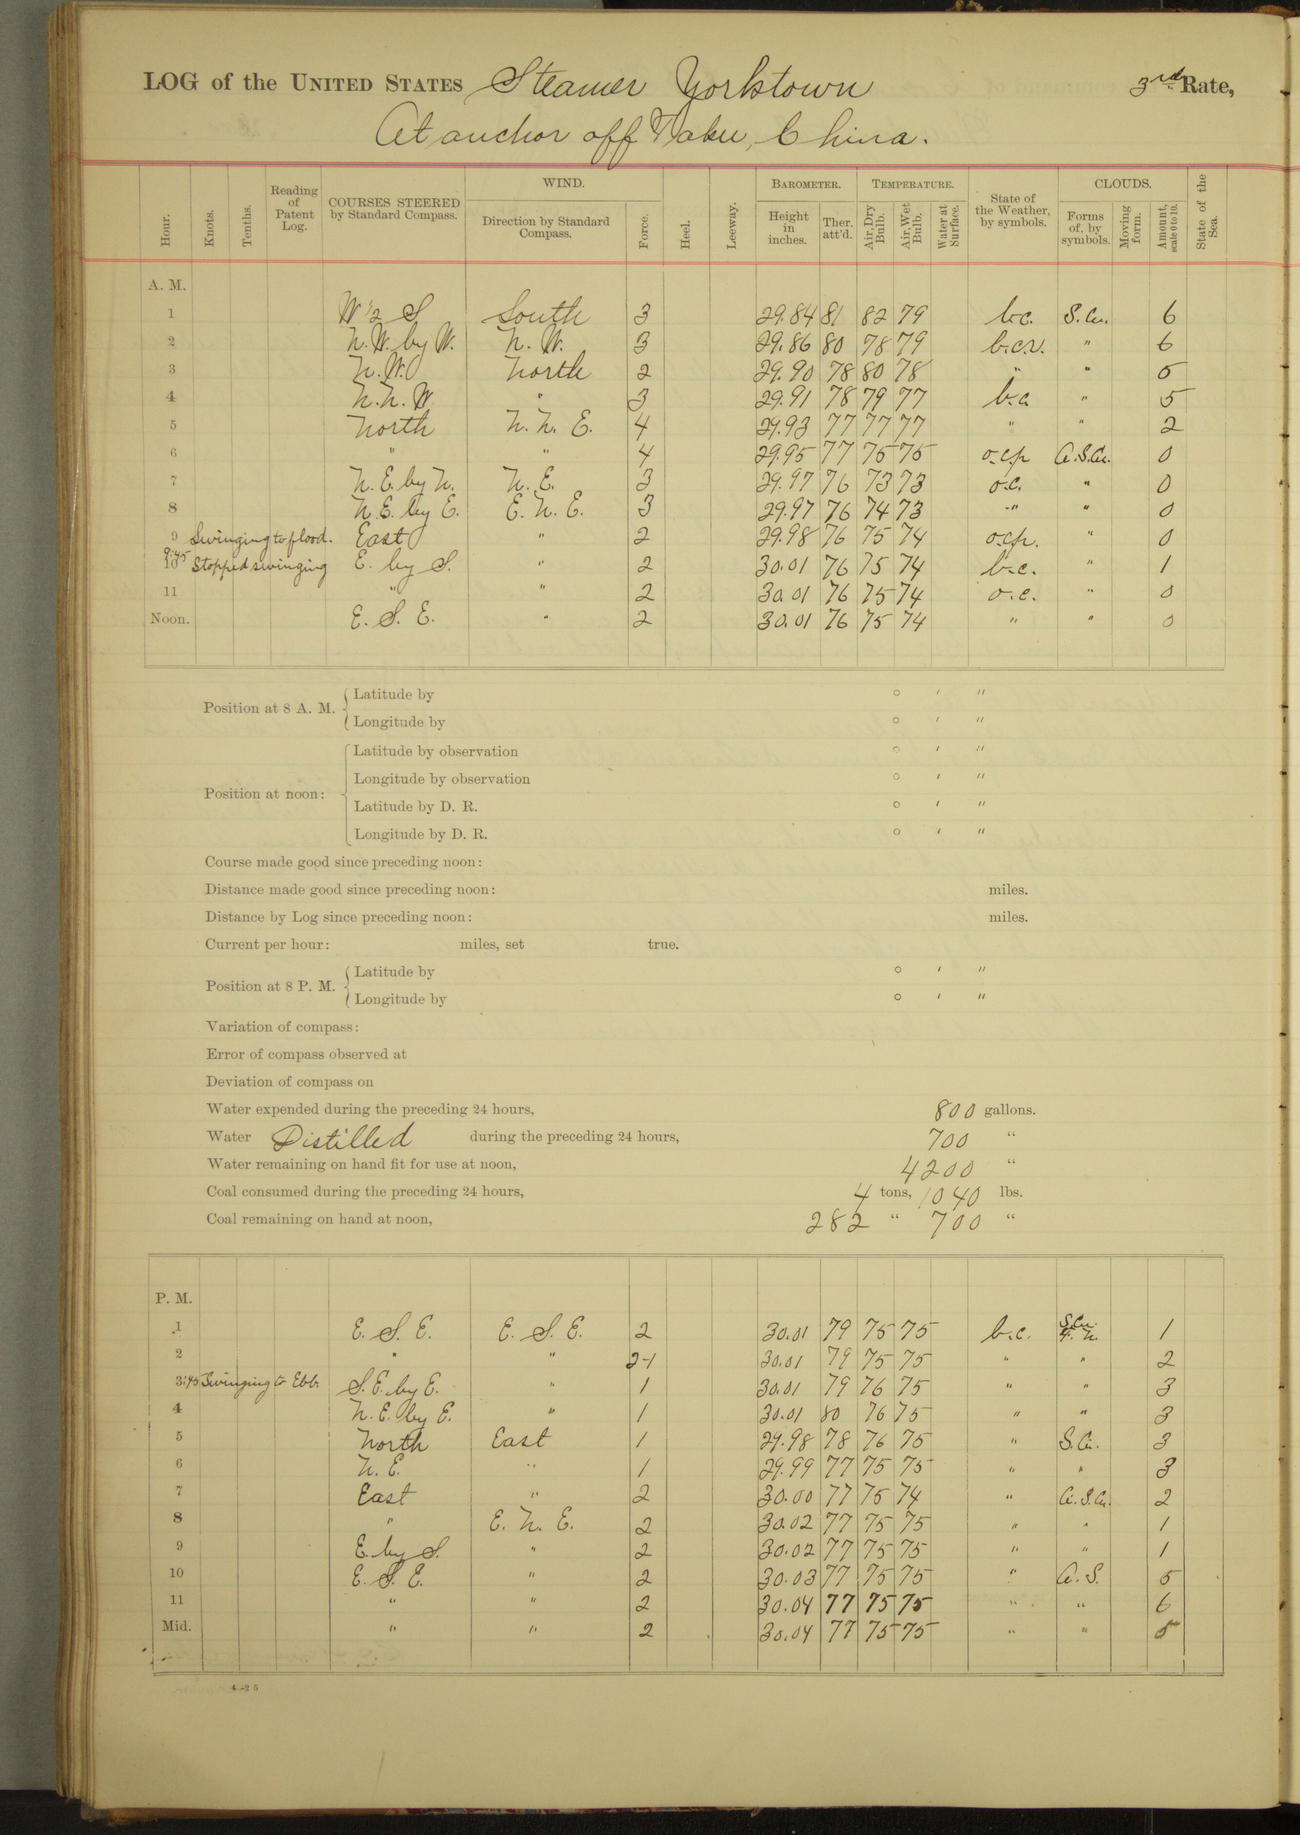 LOG of the UNITED STATES Steamer Yorktown 3rd Rate,
At anchor off Taku, China.
Hour. Knots. Tenths. Reading of Patent Log. COURSES STEERED by Standard Compass. WIND. Direction by Standard Compass. Force. Heel. Leeway. BAROMETER. Height in inches. Ther. att'd. TEMPERATURE. Air, Dry Bulb. Air, Wet Bulb. Water at Surface. State of the Weather, by symbols. CLOUDS. Forms of, by symbols. Moving form. Amount, scale 0 to 10. State of the Sea.
A. M.
1 W ½ S South 3 29.84 81 82 79 b.c. S.Cu. 6
2 N.W. by W. N. W. 3 29.86 80 78 79 b.c.r. " 6
3 N.W. North 2 29.90 78 80 78 " " 5
4 N.N.W. " 3 29.91 78 79 77 b.c. " 5
5 North N. N. E. 4 29.93 77 77 77 " " 2
6 " " 4 29.95 77 75 75 o.c.p. C.S.Cu. 0
7 N.E. by N. N. E. 3 29.97 76 73 73 o.c. " 0
8 N.E. by E. E. N. E. 3 29.97 76 74 73 " " 0
9 Swinging to flood. East " 2 29.98 76 75 74 o.c.p. " 0
9:45 10 Stopped swinging E. by S. " 2 30.01 76 75 74 b.c. " 1
11 " " 2 30.01 76 75 74 o.c. " 0
Noon. E. S. E. " 2 30.01 76 75 74 " " 0
Position at 8 A. M. Latitude by ° ' "
Longitude by ° ' "
Position at noon: Latitude by observation ° ' "
Longitude by observation ° ' "
Latitude by D. R. ° ' "
Longitude by D. R. ° ' "
Course made good since preceding noon:
Distance made good since preceding noon: miles.
Distance by Log since preceding noon: miles.
Current per hour: miles, set true.
Position at 8 P. M. Latitude by ° ' "
Longitude by ° ' "
Variation of compass:
Error of compass observed at
Deviation of compass on
Water expended during the preceding 24 hours, 800 gallons.
Water Distilled during the preceding 24 hours, 700 "
Water remaining on hand fit for use at noon, 4200 "
Coal consumed during the preceding 24 hours, 4 tons, 1040 lbs.
Coal remaining on hand at noon, 282 " 700 "
P. M.
1 E. S. E. E. S. E. 2 30.01 79 75 75 b.c. S.Cu. 1
2 " " 2-1 30.01 79 75 75 " " 2
3:45 Swinging to Ebb. S.E. by E. " 1 30.01 79 76 75 " " 3
4 N.E. by E. " 1 30.01 80 76 75 " " 3
5 North East 1 29.98 78 76 75 " S.Cu. 3
6 N. E. " 1 29.99 77 75 75 " " 3
7 East " 2 30.00 77 75 74 " C.S.Cu. 2
8 " E. N. E. 2 30.02 77 75 75 " " 1
9 E. by S. " 2 30.02 77 75 75 " " 1
10 E. S. E. " 2 30.03 77 75 75 " C.S. 5
11 " " 2 30.04 77 75 75 " " 6
Mid. " " 2 30.04 77 75 75 " " 5
4-25